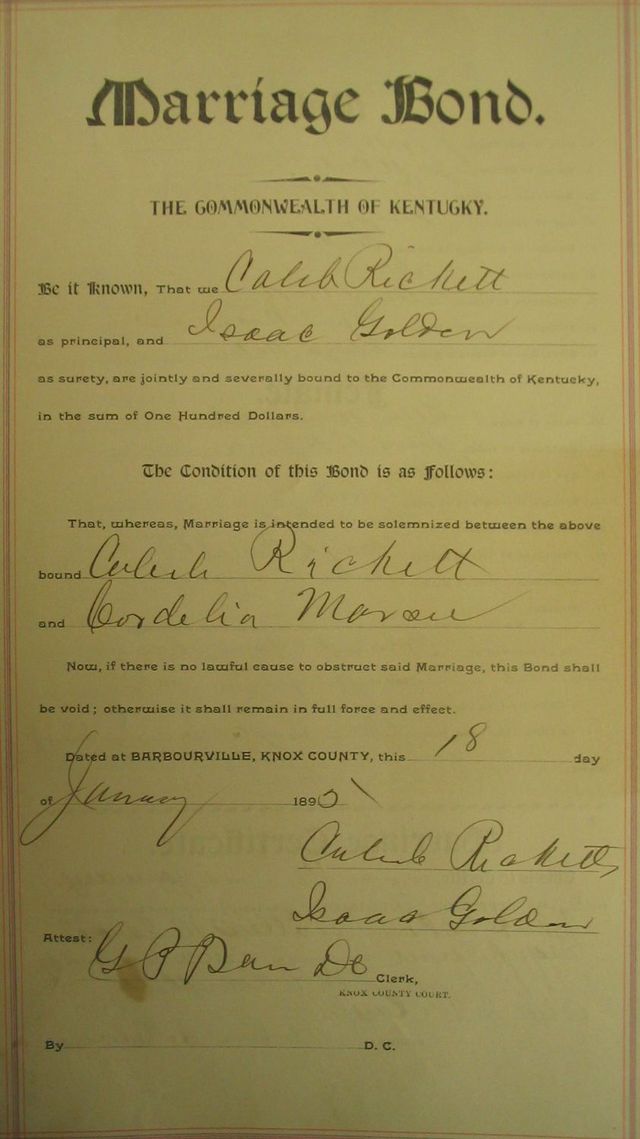 Marriage Bond.
THE COMMONWEALTH OF KENTUCKY.
Be it Known, That we Caleb Rickett
as principal, and Isaac Golden
as surety, are jointly and severally bound to the Commonwealth of Kentucky,
in the sum of One Hundred Dollars.
The Condition of this Bond is as Follows:
That, whereas, Marriage is intended to be solemnized between the above
bound Caleb Rickett
and Cordelia
Now, if there is no lawful cause to obstruct said Marriage, this Bond shall
be void; otherwise it shall remain in full force and effect.
Dated at BARBOURVILLE, KNOX COUNTY, this 18 day
of January 1895
Caleb Rickett
Isaac Golden
Attest: G P Clerk,
KNOX COUNTY COURT.
By D. C.